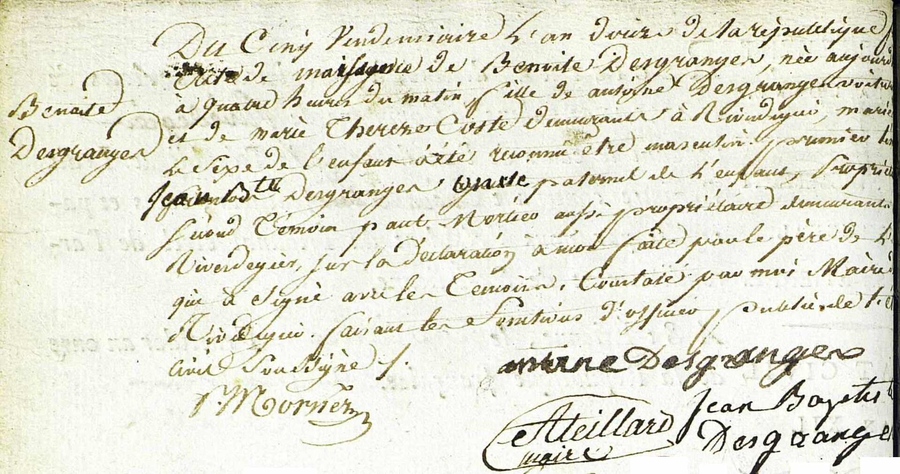 Du Cinq Vendemiaire L'an douze de la république
acte de naissance de Benoite Desgranges, née aujourd
Benoite
Desgranges
a quatre heures du matin, fille de antoine Desgranges voitur
et de marie Thereze Coste demeurants à Riverdegier, marié
Le Sexe de l'enfant a été reconnu être masculin. premier
Jean Bte Desgranges oncle paternel de L'enfant, Propriét
Second Témoin paul aussi propriétaire demeurant
Riverdegier, sur la Déclaration à moi faite par le père de L'e
qui a Signé avec les Temoins. Constaté par moi Maire
faisant les Fonctions d'officier public de l'é
civil Soussigné
antoine Desgranges
Jean Baptist
maire
Desgranges